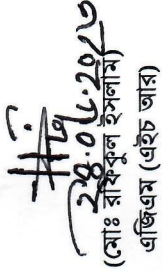 ২৪.০৮.২০২৩
(মোঃ রফিকুল ইসলাম)
এজিএম (এইচ আর)